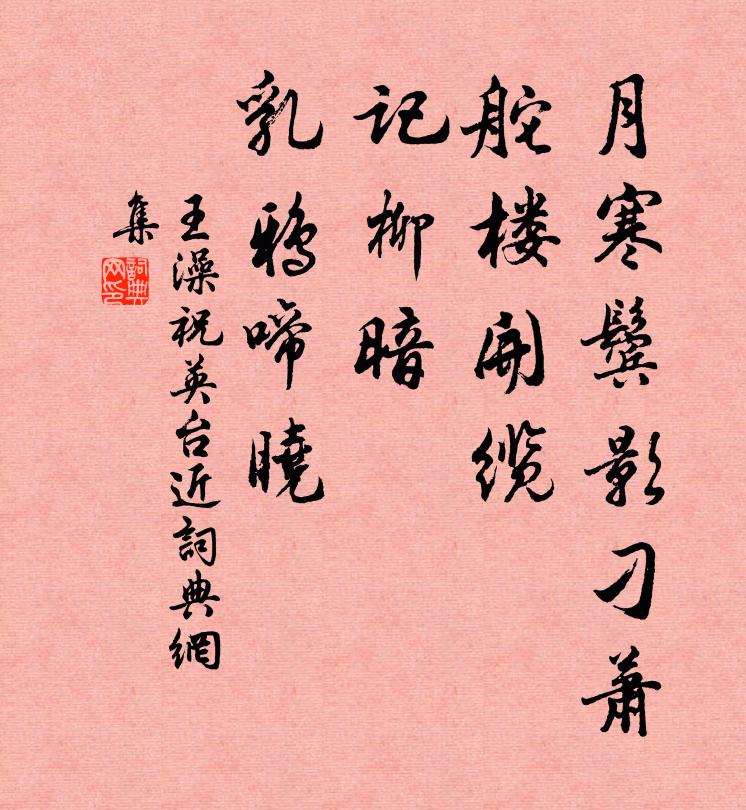 月寒鬓影刁萧
舵楼开缆
记柳暗
乳鸦啼晓
王澡祝英台近詞典網
集
詞典
网印